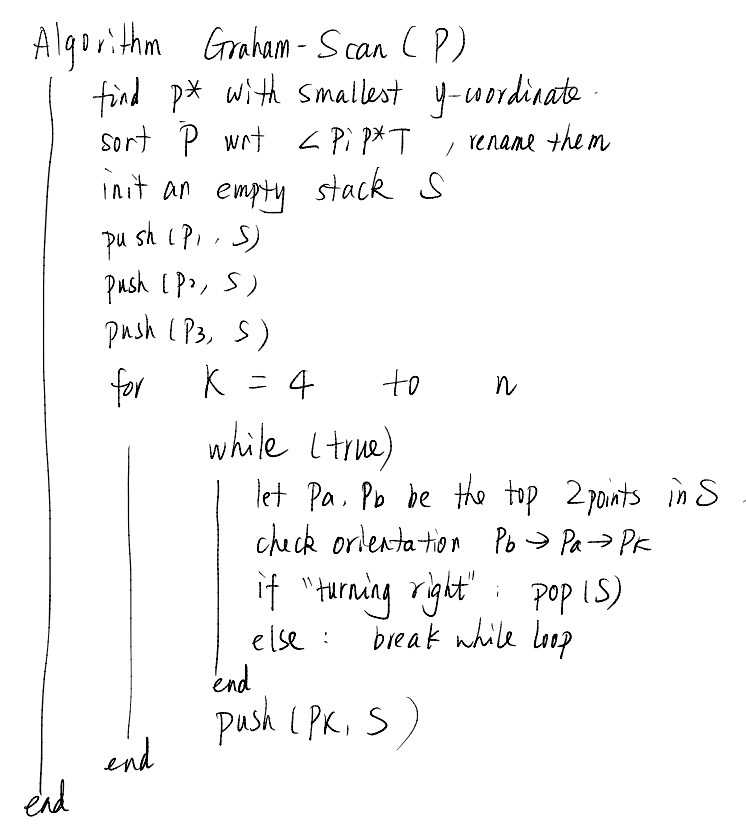 Algorithm Graham-Scan (P)
find p* with smallest y-coordinate.
sort P wrt ∠PiP*T , rename them
init an empty stack S
push (P1, S)
push (P2, S)
push (P3, S)
for K = 4 to n
while (true)
let Pa, Pb be the top 2 points in S.
check orientation Pb → Pa → PK
if "turning right" : pop (S)
else : break while loop
end
push (PK, S)
end
end